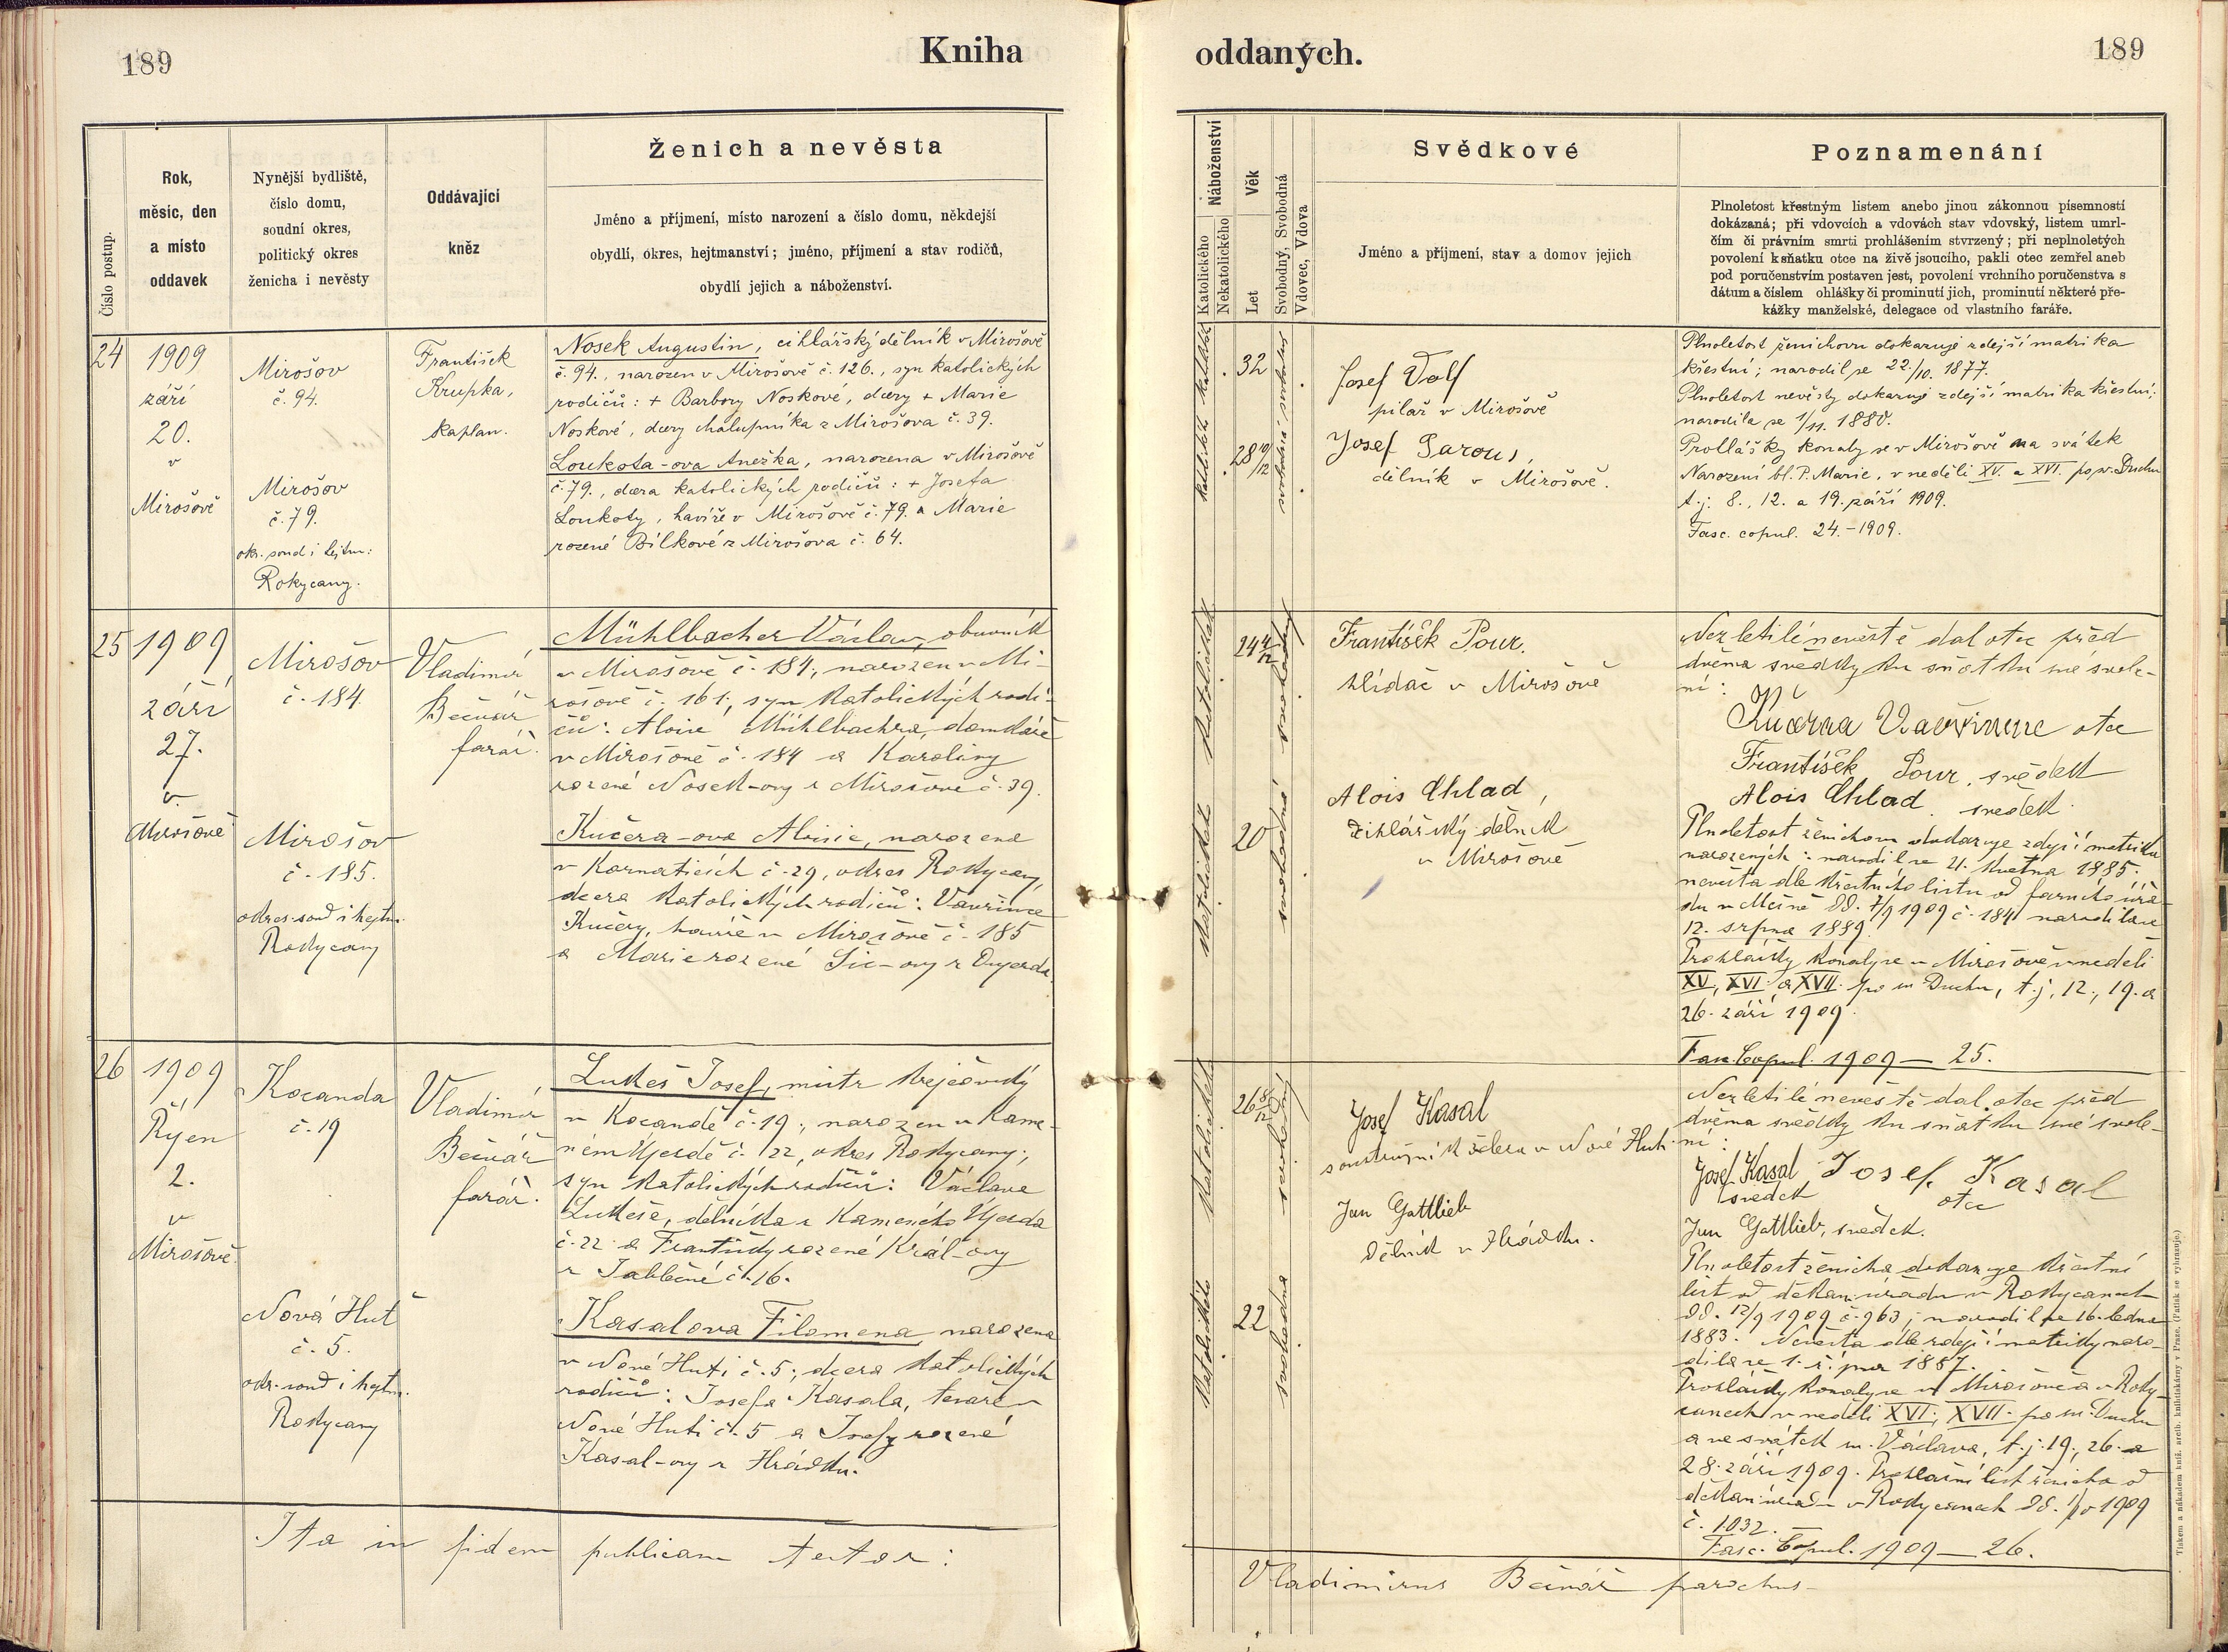 189
Kniha
oddaných.
189
Číslo postup.
Rok,
měsíc, den
a místo
oddavek
Nynější bydliště,
číslo domu,
soudní okres,
politický okres
ženicha i nevěsty
Oddávající
kněz
Ženich a nevěsta
Jméno a příjmení, místo narození a číslo domu, někdejší
obydlí, okres, hejtmanství; jméno, příjmení a stav rodičů,
obydlí jejich a náboženství.
Náboženství
Katolického
Nekatolického
Věk
Let
Svobodný, Svobodná
Vdovec, Vdova
Svědkové
Jméno a příjmení, stav a domov jejich
Poznamenání
Plnoletost křestným listem anebo jinou zákonnou písemností
dokázaná; při vdovcích a vdovách stav vdovský, listem umrl-
čím či právním smrti prohlášením stvrzený; při neplnoletých
povolení k sňatku otce na živě jsoucího, pakli otec zemřel aneb
pod poručenstvím postaven jest, povolení vrchního poručenstva s
dátum a číslem ohlášky či prominutí jich, prominutí některé pře-
kážky manželské, delegace od vlastního faráře.
24
1909
září
20.
v
Mirošově
Mirošov
č. 94.
Mirošov
č. 79.
okr. soud i hejtm:
Rokycany.
František
Krupka,
kaplan.
Nosek Augustin, cihlářský dělník v Mirošově
č. 94., narozen v Mirošově č. 126., syn katolických
rodičů: + Barbory Noskové, dcery + Marie
Noskové, dcery chalupníka z Mirošova č. 39.
Loukota-ova Anežka, narozena v Mirošově
č. 79., dcera katolických rodičů: + Josefa
Loukoty, havíře v Mirošově č. 79. a Marie
rozené Bílkové z Mirošova č. 64.
32
28 10/12
Josef Volf
pilař v Mirošově
Josef Parous,
dělník v Mirošově.
Plnoletost ženichovu dokazuje zdejší matrika
křestní; narodil se 22./10. 1877.
Plnoletost nevěsty dokazuje zdejší matrika křestní;
narodila se 1/11. 1880.
Prohlášky konaly se v Mirošově na svátek
Narození bl. P. Marie, v neděli XV. a XVI. po sv. Duchu
t. j. 8., 12. a 19. září 1909.
Fasc. copul. 24.-1909.
25
1909
září
27.
v
Mirošově
Mirošov
č. 184.
Mirošov
č. 185.
okres. soud i hejtm.
Rokycany
Vladimír
Bečvář
farář.
Mühlbacher Václav, obuvník
v Mirošově č. 184., narozen v Mi-
rošově č. 161., syn katolických rodi-
čů: Aloise Mühlbachra, domkáře
v Mirošově č. 184 a Karoliny
rozené Nosek-ovy z Mirošova č. 39.
Kučera-ova Aloisie, narozena
v Kornaticích č. 29, okres Rokycany,
dcera katolických rodičů: Vavřince
Kučery, havíře v Mirošově č. 185
a Marie rozené
24 4/12
20
František Pour.
hlídač v Mirošově
Alois Chlad,
cihlářský dělník
v Mirošově
Nezletilé nevěstě dal otec před
dvěma svědky ku sňatku své svole-
ní:
Kučera Vavřinec otec
František Pour, svědek
Alois Chlad svědek.
Plnoletost ženichovu dokazuje zdejší matrika
narozených: narodil se 21. května 1885.
nevěsta dle křestního listu od farního úřa-
du v Mešně dd. 7/9 1909 č. 184 narodila se
12. srpna 1889.
Prohlášky konaly se v Mirošově v neděli
XV, XVI. a XVII. po sv Duchu, t. j. 12., 19. a
26. září 1909.
Fasc. Copul. 1909 — 25.
26
1909
Říjen
2.
v
Mirošově.
Kocanda
č. 19
Nová Huť
č. 5.
okr. soud i hejtm.
Rokycany
Vladimír
Bečvář
farář.
Lukeš Josef, mistr krejčovský
v Kocandě č. 19., narozen v Kame-
ném Újezdě č. 22, okres Rokycany,
syn katolických rodičů: Václava
Lukeše, dělníka z Kameného Újezda
č. 22 a Františky rozené Král-ovy
z Jablečné č. 16.
Kasalova Filomena, narozena
v Nové Huti č. 5, dcera katolických
rodičů: Josefa Kasala, tesaře v
Nové Huti č. 5 a Josefy rozené
Kasal-ovy z Hrádku.
26 8/12
22
Josef Kasal
soustružník železa v Nové Huti
Jan Gottlieb
dělník v Hrádku.
Nezletilé nevěstě dal otec před
dvěma svědky ku sňatku své svole-
ní:
Josef Kasal svědek
Josef Kasal otec
Jan Gottlieb, svědek.
Plnoletost ženicha dokazuje křestní
list od děkan. úřadu v Rokycanech
dd. 12/9 1909 č. 963; narodil se 16. ledna
1883. Nevěsta dle zdejší matriky naro-
dila se 1. října 1887.
Prohlášky konaly se v Mirošově a v Roky-
canech v neděli XVI., XVII. po sv. Duchu
a ve svátek sv. Václava, t. j. 19., 26. a
28. září 1909. Prohlašní list ženicha od
děkan. úřadu v Rokycanech dd. 1/10 1909
č. 1032.
Fasc. Copul. 1909 — 26.
Ita in fidem publicam testor:
Vladimirus Bečvář parochus
Tiskem a nákladem kníž. arcib. knihtiskárny v Praze. (Patisk se vyhrazuje.)